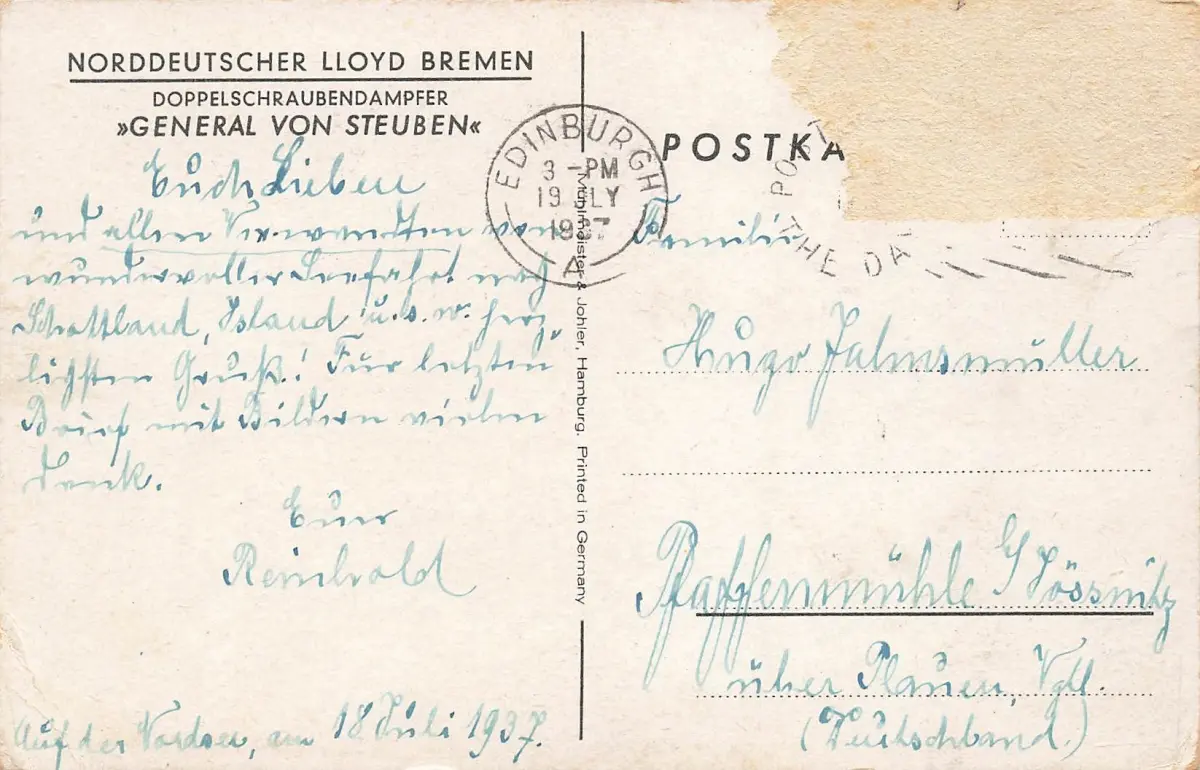 NORDDEUTSCHER LLOYD BREMEN
DOPPELSCHRAUBENDAMPFER
»GENERAL VON STEUBEN«
Euch Lieben
und allen Verwandten von
wundervoller Seefahrt nach
Schottland, Island u.s.w. herz-
lichsten Gruß! Für letzten
Brief mit Bildern vielen
Dank.
Euer
Reinhold
Auf der Nordsee, am 18 Juli 1937.
Mühlmeister & Johler, Hamburg. Printed in Germany
EDINBURGH
3 - PM
19 JLY
1937
A
POSTKA
POST
THE DA
Familie
Hugo
Pfaffenmühle
über Plauen, Vgtl.
(Deutschland.)